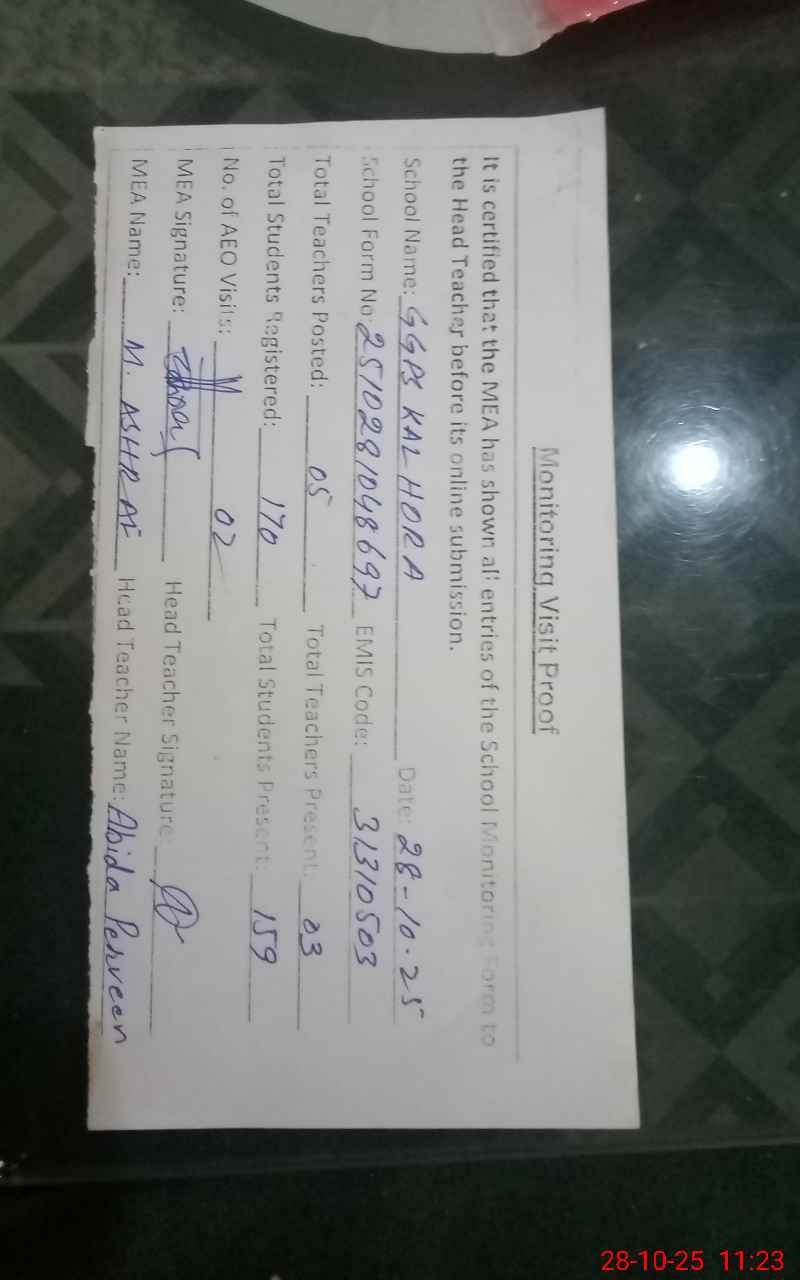 Monitoring Visit Proof
It is certified that the MEA has shown all entries of the School Monitoring Form to
the Head Teacher before its online submission.
School Name: GGPS KALHORA Date: 28-10-25
School Form No: 2510281048697 EMIS Code: 31310503
Total Teachers Posted: 05 Total Teachers Present: 03
Total Students Registered: 170 Total Students Present: 159
No. of AEO Visits: 02
MEA Signature: Head Teacher Signature:
MEA Name: M. ASHRAF Head Teacher Name: Abida Perveen
28-10-25 11:23